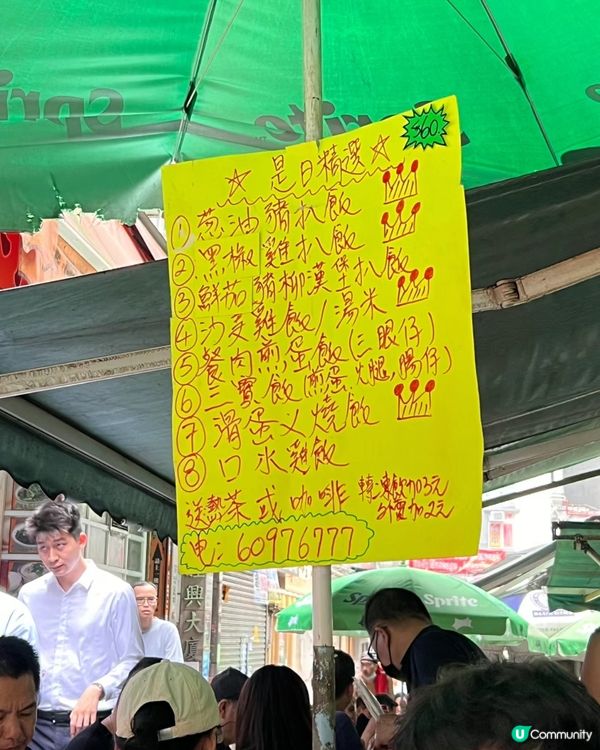 Sprite
Sprite
Sprite
$60
☆是日精選☆
① 葱油豬扒飯
② 黑椒雞扒飯
③ 鮮茄豬柳漢堡扒飯
④ 沙爹雞飯/湯米
⑤ 餐肉煎蛋飯(三眼仔)
⑥ 三寶飯(煎蛋,火腿,腸仔)
⑦ 滑蛋叉燒飯
⑧ 口水雞飯
送熱茶或咖啡
轉凍飲加3元
加2元
电:60976777
興大
Sprite
Sprite
U Community